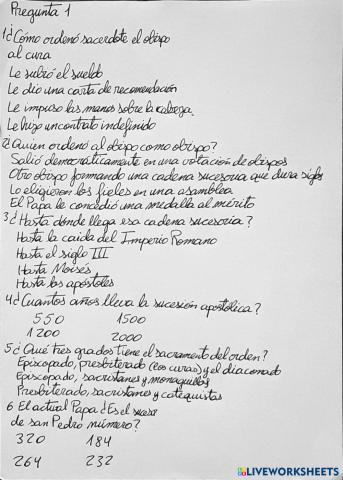 Pregunta 1
1 ¿Cómo ordenó sacerdote el obispo
al cura
Le subió el sueldo
Le dio una carta de recomendación
Le impuso las manos sobre la cabeza
Le hizo un contrato indefinido
2 ¿Quien ordenó al obispo como obispo?
Salió democráticamente en una votación de obispos
Otro obispo formando una cadena sucesoria que dura siglos
Lo eligieron los fieles en una asamblea
El Papa le concedió una medalla al mérito
3 ¿Hasta dónde llega esa cadena sucesoria?
Hasta la caida del Imperio Romano
Hasta el siglo III
Hasta Moisés
Hasta los apóstoles
4 ¿Cuantos años lleva la sucesión apostólica?
550 1500
1200 2000
5 ¿Qué tres grados tiene el sacramento del orden?
Episcopado, presbiterado (los curas) y el diaconado
Episcopado, sacristanes y monaguillos
Presbiterado, sacristanes y catequistas
6 El actual Papa ¿Es el
de san Pedro número?
320 184
264 232
LIVEWORKSHEETS